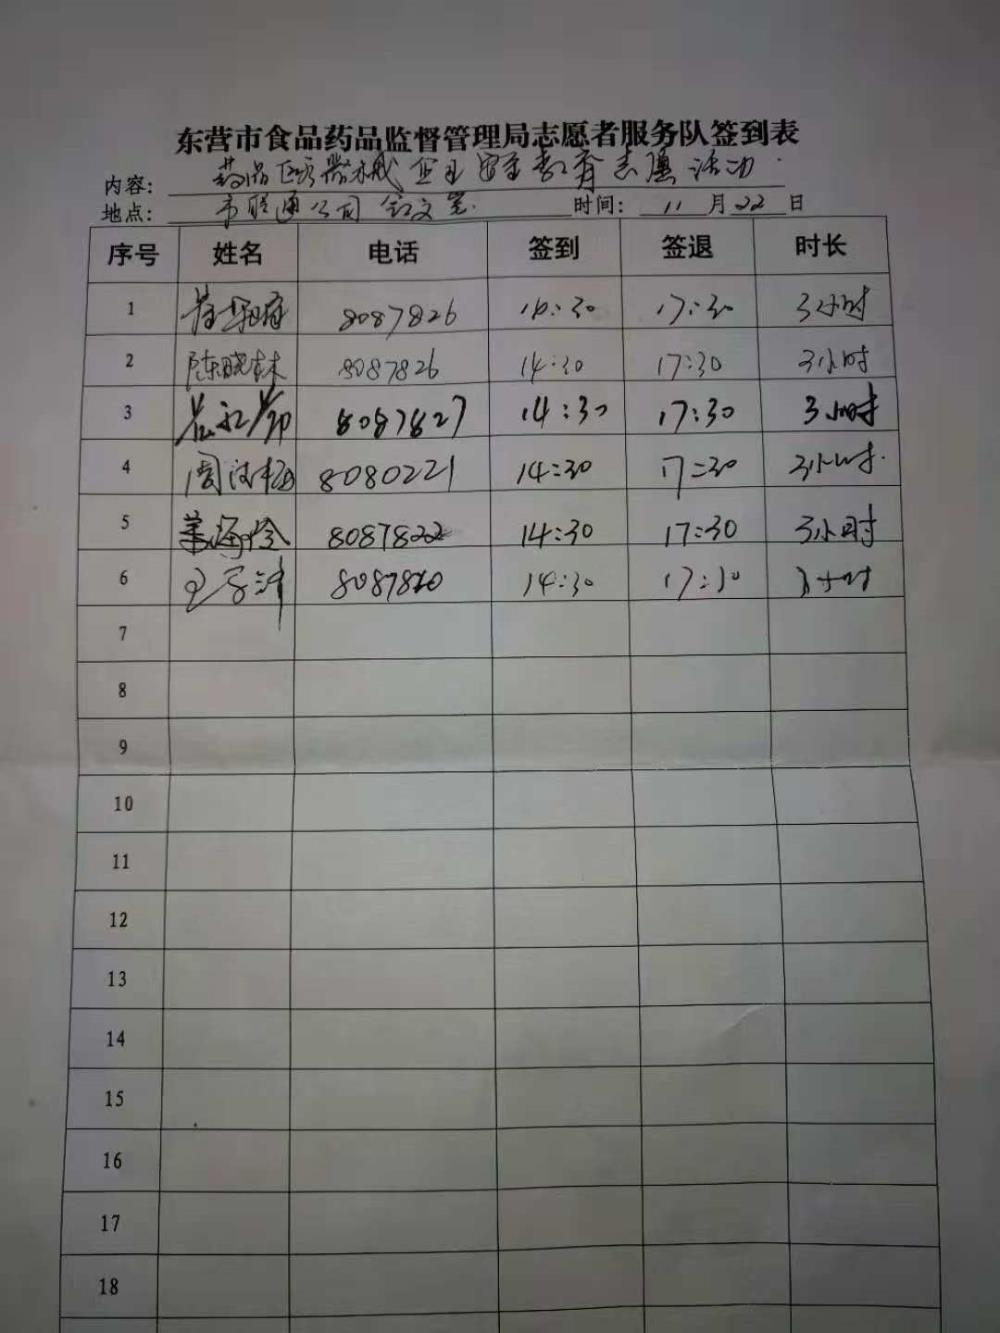 东营市食品药品监督管理局志愿者服务队签到表
内容: 药品医疗器械 安全教育志愿活动
地点: 市 通公司会议室 时间: 11 月 22 日
序号 姓名 电话 签到 签退 时长
1 8087826 14:30 17:30 3小时
2 陈晓林 8087826 14:30 17:30 3小时
3 8087827 14:30 17:30 3小时
4 周 梅 8080221 14:30 17:30 3小时.
5 海玲 8087822 14:30 17:30 3小时
6 王 8087820 14:30 17:30 3小时
7
8
9
10
11
12
13
14
15
16
17
18